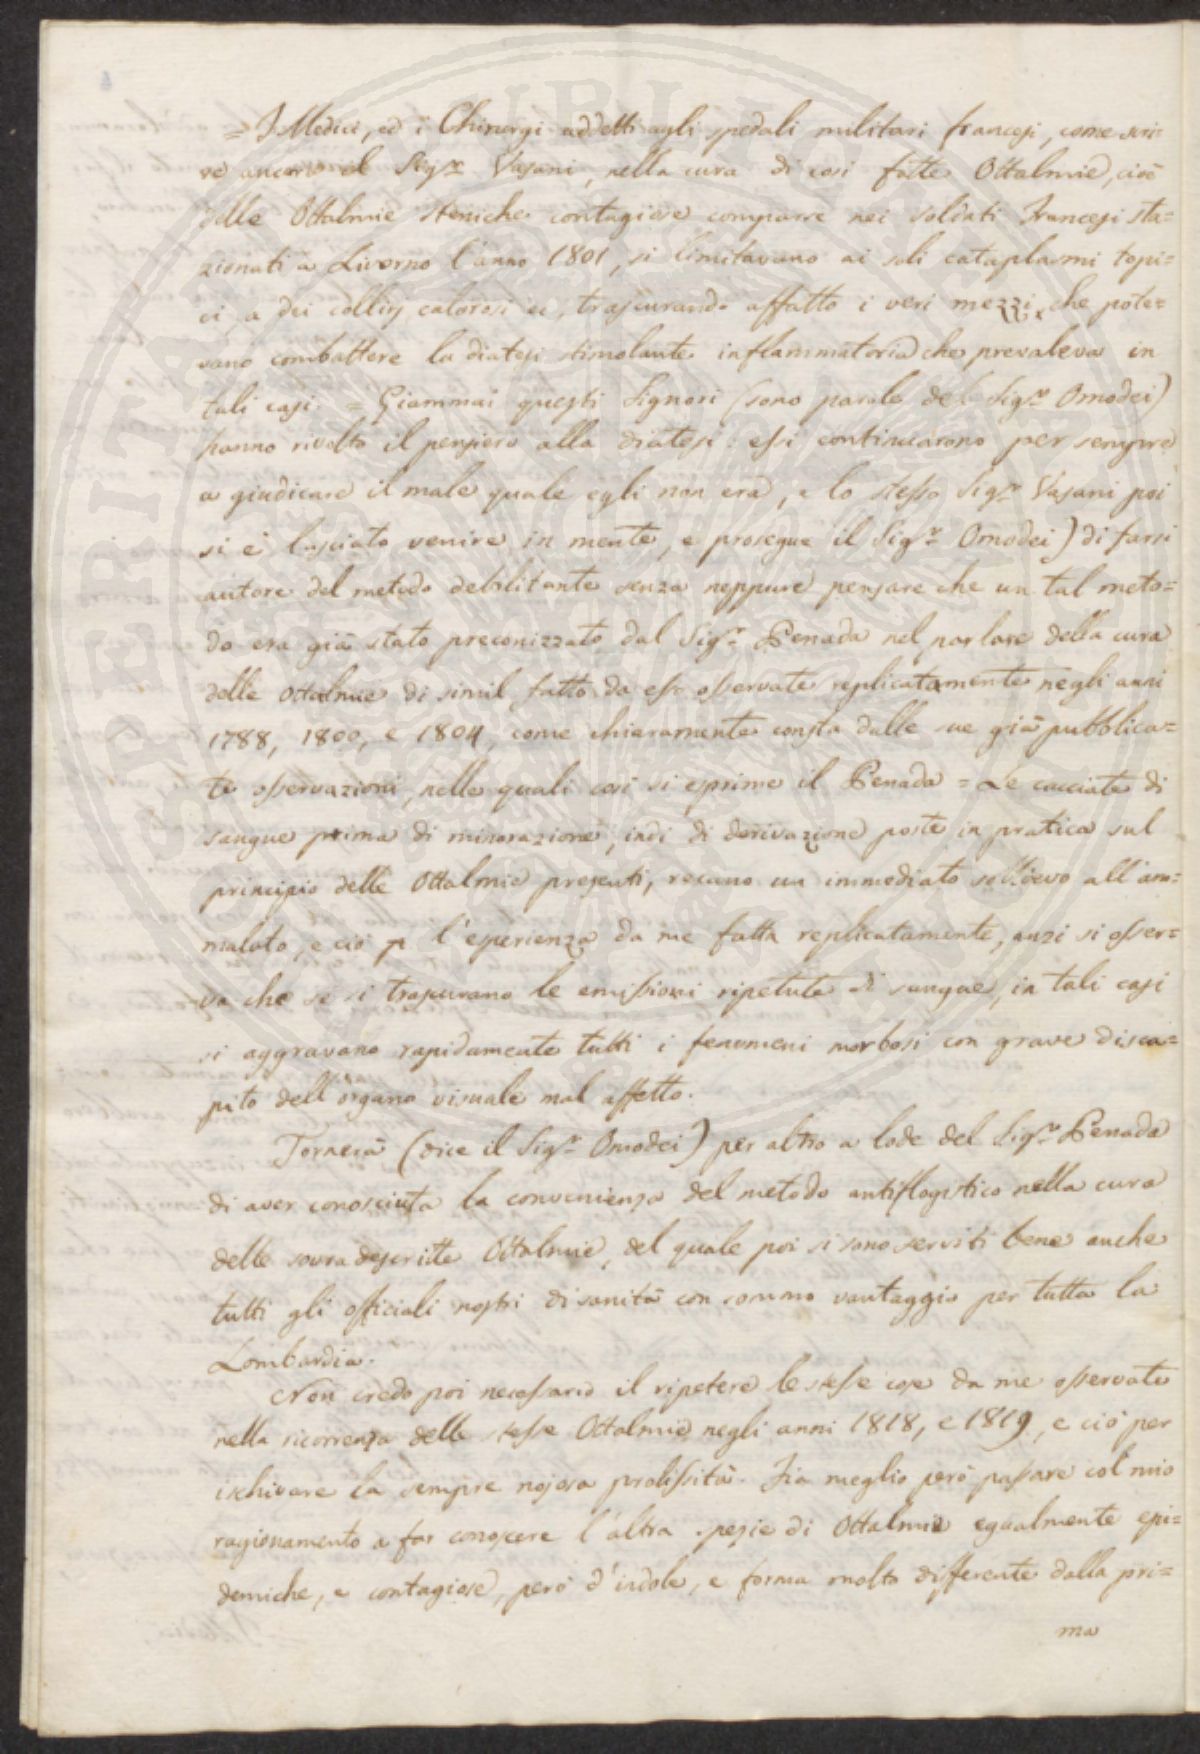 = I Medici, ed i Chirurgi addetti agli spedali militari francesi, come scri=
ve ancora il Sig.r Vasani, nella cura di così fatte Ottalmie, cioè
delle Ottalmie steniche contagiose comparse nei soldati Francesi sta=
zionati a Livorno l'anno 1801, si limitavano ai soli cataplasmi topi=
ci, a dei collirj calorosi ec, trascurando affatto i veri mezzi, che pote=
vano combattere la diatesi stimolante infiammatoria che prevaleva in
tali casi. = Giammai questi Signori (sono parole del Sig.r Omodei)
hanno rivolto il pensiero alla diatesi: essi continuarono per sempre
a giudicare il male quale egli non era, e lo stesso Sig.r Vasani poi
si è lasciato venire in mente, e prosegue il Sig.r Omodei) di farsi
autore del metodo debilitante senza neppure pensare che un tal meto=
do era già stato preconizzato dal Sig.r Penada nel parlare della cura
delle Ottalmie di simil fatto da esso osservate replicatamente negli anni
1788, 1800, e 1804, come chiaramente consta dalle sue già pubblica=
te osservazioni, nelle quali così si esprime il Penada = Le cacciate di
sangue prima di minorazione, indi di derivazione poste in pratica sul
principio delle Ottalmie presenti, recano un immediato sollievo all'am=
malato, e ciò p. l'esperienza da me fatta replicatamente, anzi si osser=
va che se si trascurano le emissioni ripetute di sangue, in tali casi
si aggravano rapidamente tutti i fenomeni morbosi con grave disca=
pito dell'organo visuale mal affetto.
Tornerà (dice il Sig.r Omodei) per altro a lode del Sig.r Penada
di aver conosciuta la convenienza del metodo antiflogistico nella cura
delle sovradescritte Ottalmie, del quale poi si sono serviti bene anche
tutti gli officiali nostri di sanità con sommo vantaggio per tutta la
Lombardia.
Non credo poi necessario il ripetere le stesse cose da me osservate
nella ricorrenza delle stesse Ottalmie negli anni 1818, e 1819, e ciò per
ischivare la sempre nojosa prolissità. Fia meglio però passare col mio
ragionamento a far conoscere l'altra spezie di Ottalmie egualmente epi=
demiche, e contagiose, però d'indole, e forma molto differente dalla pri=
ma